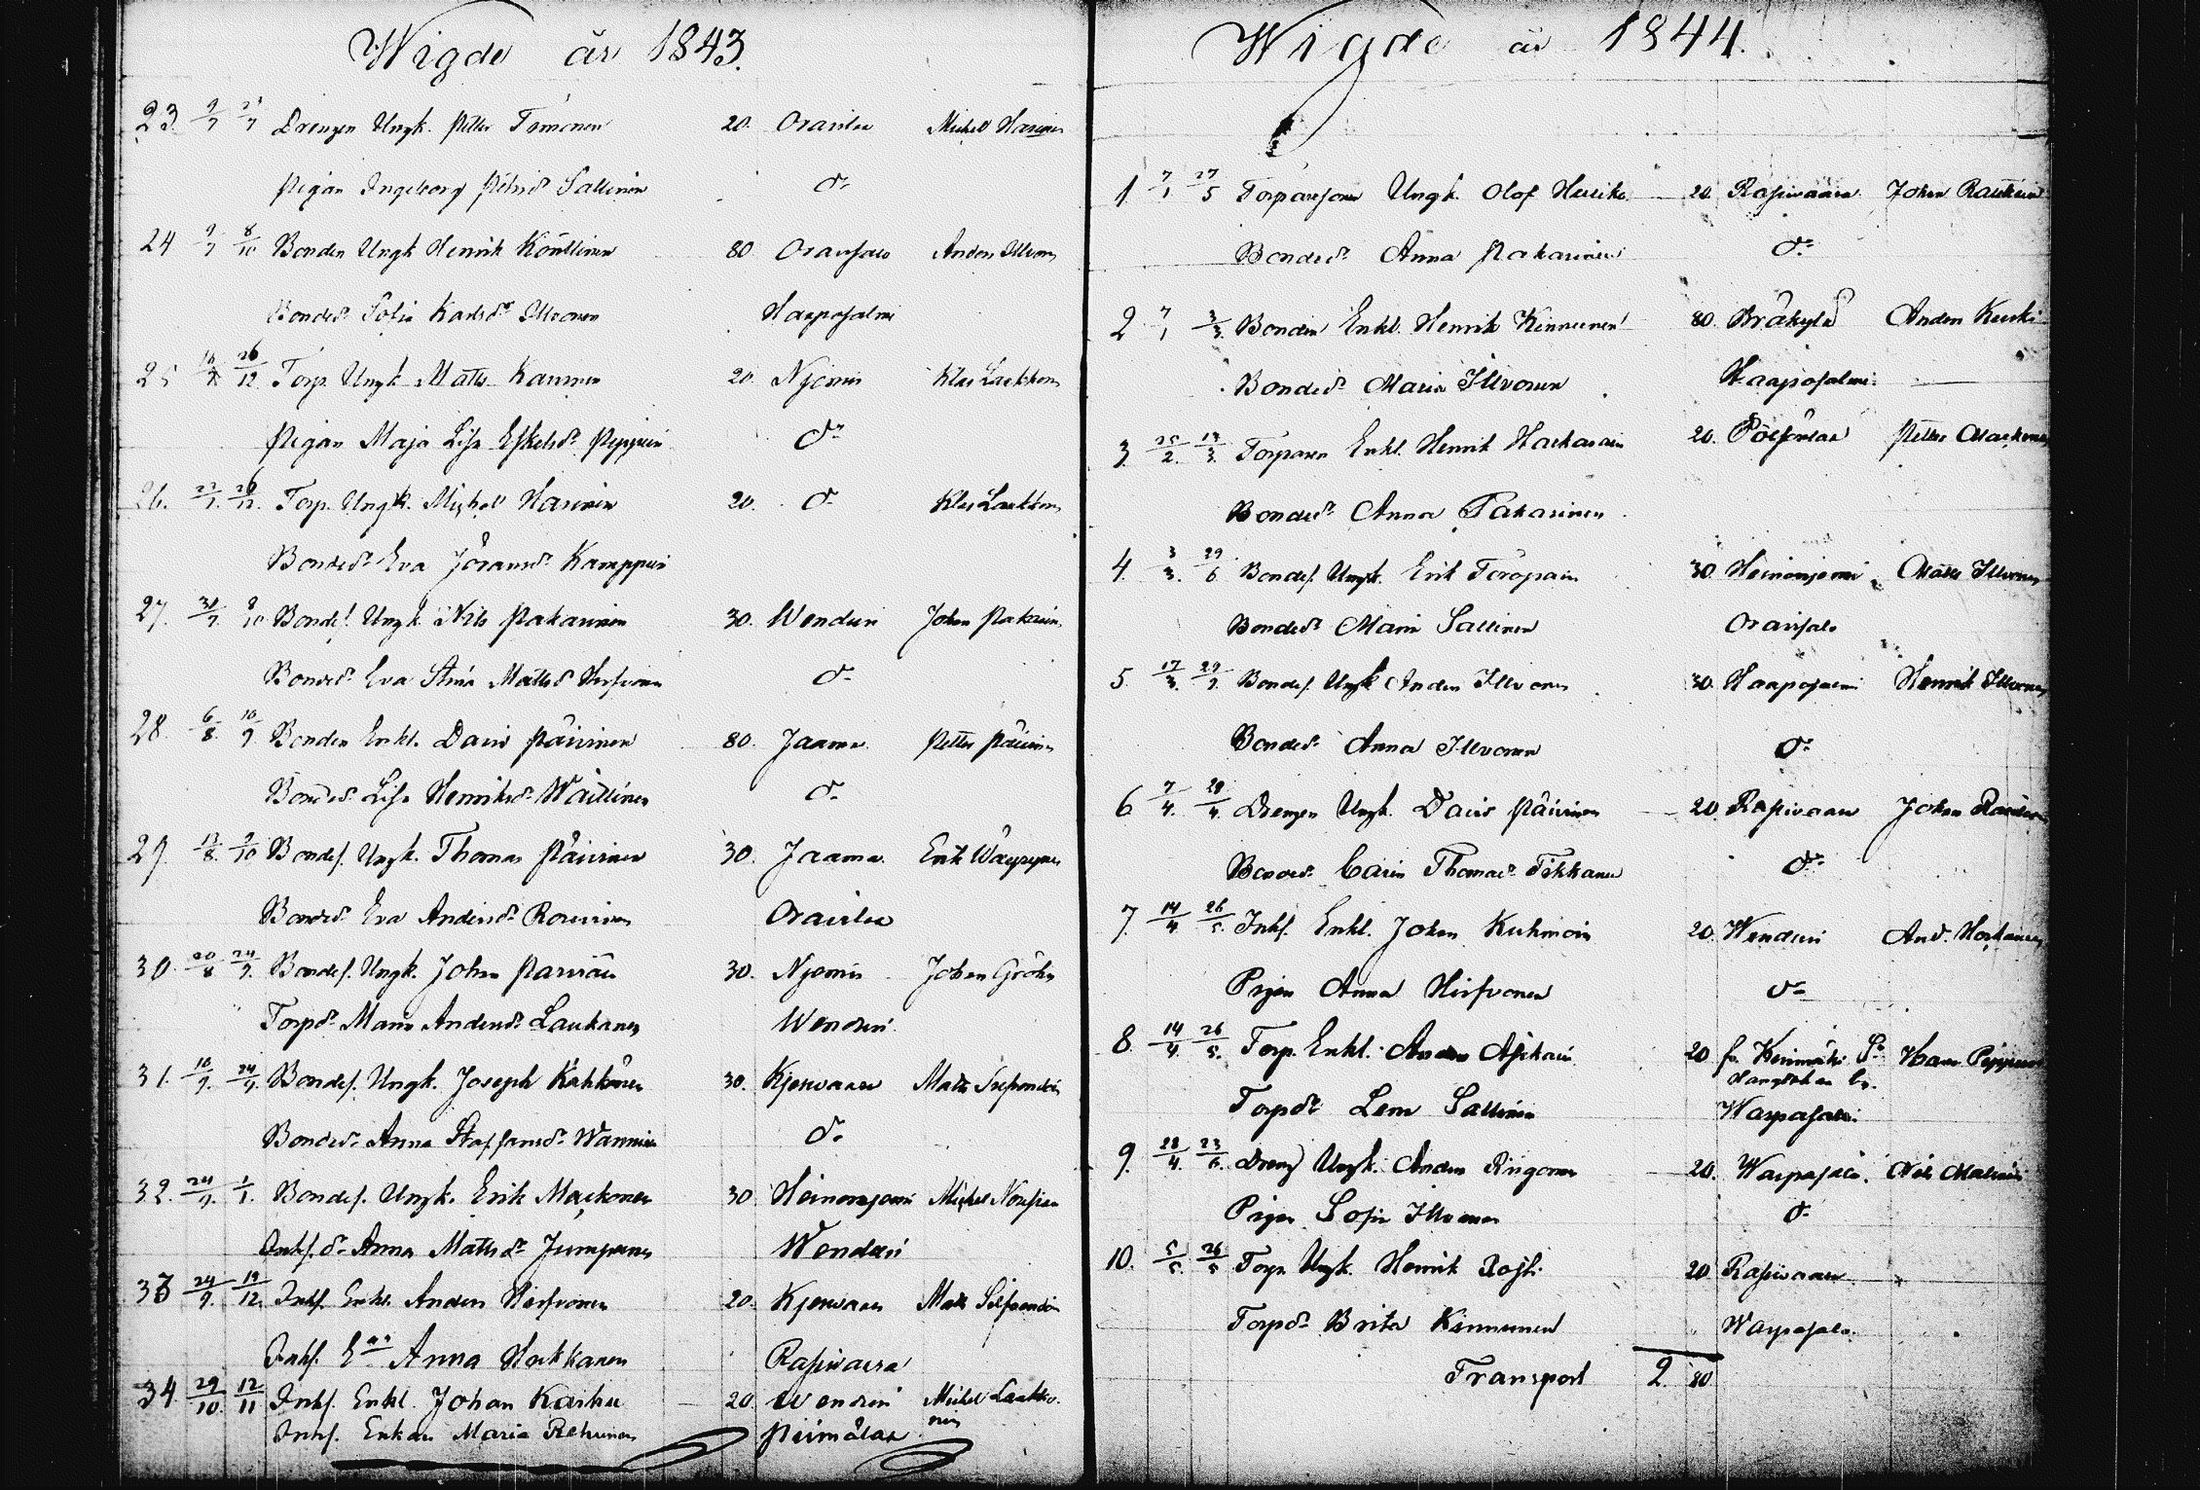 Wigde år 1843.
23. 9/7 23/7 Drengen Ungk. Petter Timonen 20. Oravilax Michel Harinen
Pigan Ingeborg Petrisdr Sallinen do
24 9/7 8/10 Bonden Ungk Henrik Könttinen 80. Oravisalo Anders Illvonen
Bondedr Sofia Karlsdr Illvonen Haapasalmi
25 16/7 26/12 Torp. Ungk Matts Kaurinen 20. Njemis Klas Laakkonen
Pigan Maja Lisa Eskelsdr Pyppuin do
26. 23/7. 26/12. Torp. Ungk. Michel Harinen 20. do Klas Laakkonen
Bondedr Eva Jöransdr Kamppuri
27. 30/7. 8/10 Bondes. Ungk. Nils Pakarinen 30. Wenduri Johan Pakarinen
Bondedr Eva Stina Mattsdr Hirfvonen do
28. 6/8. 10/9. Bonden Enkl. David Päivinen 80. Jaama Petter Päivinen
Bondedr Lisa Henriksdr Wäillinen do
29 13/8. 9/10 Bondes. Ungk. Thomas Päivinen 30. Jaama Erik Wäyrynen
Bondedr Eva Andersdr Rouvinen Oravilax
30. 20/8 24/9. Bondes. Ungk. Johan Parviain 30. Njemis Johan Gröhn
Torpdr Maria Andersdr Laukanen Wenduri
31. 10/9. 24/9. Bondes. Ungk. Joseph Kähkönen 30. Kjesvaara Matts
Bondedr Anna Staffansdr Wanninen do
32. 24/9. 1/1. Bondes. Ungk. Erik Maukonen 30 Heinoniemi Michel Nousiain
Inhs. dr Anna Mattsdr Jumpanen Wenduri
33 24/9. 19/12. Inhs. Enkl. Anders Hirfvonen 20. Kjesvaara Matts
Inhs. Ean Anna Hackkanen Rasivaara
34 29/10. 12/11 Inhs. Enkl. Johan Karhu 20. Wenduri Michel Laakko-
nen
Inhs. Enkan Maria Rehunen Piimälax
Wigde år 1844.
1 7/1 27/5 Torparesonen Ungk. Olof Huikko 20. Rasivaara Johan
Bondedr Anna Pakarinen do
2 7/1 3/3. Bonden Enkl. Henrik Kinnunen 80. Bräkylä Anders Kurki
Bondedr Maria Illvonen Haapasalmi
3. 25/2. 17/3. Torparen Enkl. Henrik 20. Pölsönlax Petter Maukonen
Bondedr Anna Pakarinen
4. 3/3. 29/6. Bondes. Ungk. Erik Toropain 30 Heinoniemi Matts Illvonen
Bondedr Maria Sallinen Oravisalo
5. 17/3. 29/9. Bondes. Ungk Anders Illvonen 30 Haapasalmi Henrik Illvonen
Bondedr Anna Illvonen do
6 7/4. 28/4. Drengen Ungk. David Päivinen 20. Rasivaara Johan
Bondedr Carin Thomasdr Tikkanen do
7. 14/4 26/5. Inhs. Enkl. Johan Kuhmoin 20. Wenduri And.
Pigan Anna Hirfvonen do
8. 14/4. 26/5. Torp. Enkl. Anders Asikain 20 fr. Kerimäki Sn Hans Pyppuin
Torpdr Lena Sallinen Warpasalo.
9. 28/4. 23/6. Dreng Ungk. Anders Ringonen 20. Warpasalo. Nils
Pigan Sofia Illvonen do
10. 5/5. 26/5 Torp. Ungk. Henrik 20 Rasivaara
Torpdr Brita Kinnunen Warpasalo.
Transport 2. 80